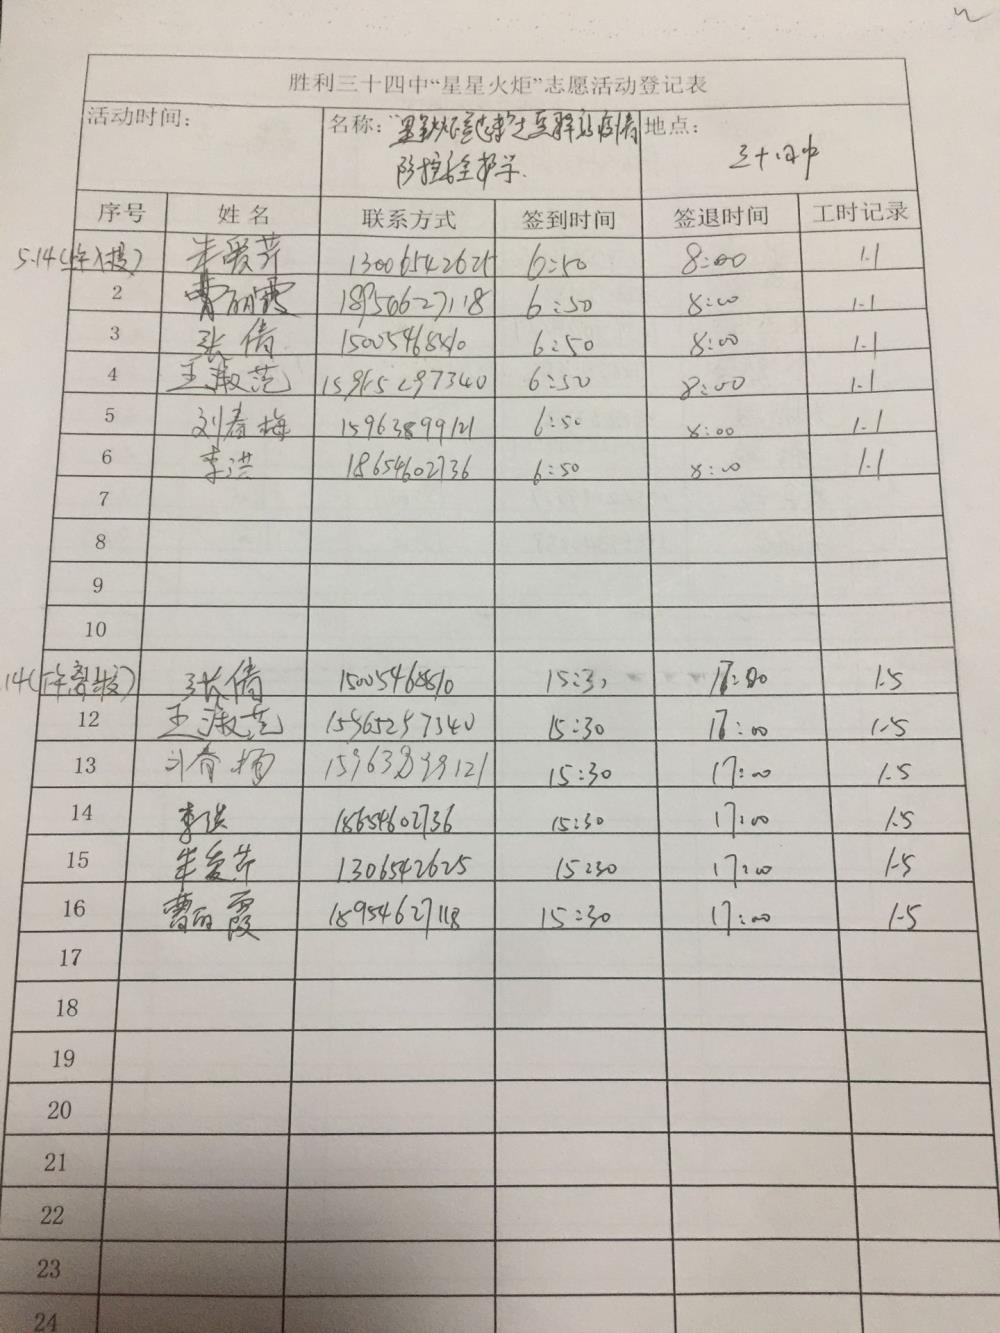 胜利三十四中“星星火炬”志愿活动登记表
活动时间： 名称： 地点：
三十四中
防控 护学.
序号 姓名 联系方式 签到时间 签退时间 工时记录
5.14(上午入校) 朱爱芹 13006542625 6:50 8:00 1.1
2 曹丽霞 18954627118 6:50 8:00 1.1
3 张倩 15005468510 6:50 8:00 1.1
4 王淑范 15965297340 6:50 8:00 1.1
5 刘春梅 15963899121 6:50 8:00 1.1
6 李洪 18654602736 6:50 8:00 1.1
7
8
9
10
14(下午离校) 张倩 15005468510 15:30 17:00 1.5
12 王淑范 15965297340 15:30 17:00 1.5
13 刘春梅 15963899121 15:30 17:00 1.5
14 李洪 18654602736 15:30 17:00 1.5
15 朱爱芹 1306542625 15:30 17:00 1.5
16 曹丽霞 18954627118 15:30 17:00 1.5
17
18
19
20
21
22
23
24